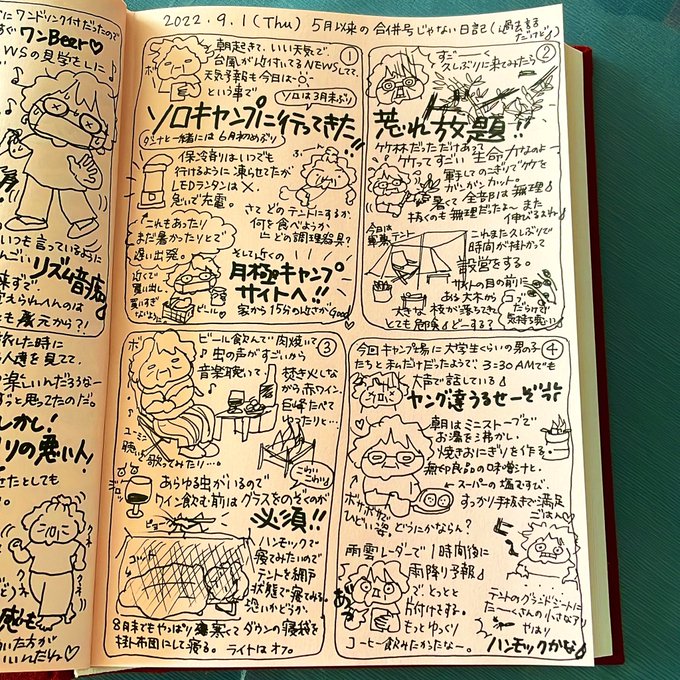 2022.9.1(Thu) 5月以来の合併号じゃない日記(過去書る
だけど!)
①
朝起きて、いい天気で
台風が近付いてるNEWSしてて、
天気予報も今日は
という事で
ソロは3月末ぶり
ソロキャンプに行ってきた!!
ダンナと一緒には6月初めぶり
保冷剤はいつでも
行けるように凍らせてたが
LEDランタンは×。
急いで充電。
さてどのテントにするか
何を食べようか
どの調理器具?
これもあったり
まだ暑かったりとで
遅い出発。
近くで
買い出し
買いすぎ
ないように
ビール
そして近くの
月極キャンプ
サイトへ!!
家から15分の近さがGood
②
すごーく
久しぶりに来てみたら
荒れ放題!!
竹林だっただけあって
ケケってすごい生命力なのよ
軍手してのこぎりでケケを
ガンガンカット。
暑くて全部は無理
抜くのも無理だったよ〜また
伸びるよね
今日は
軍幕テント
これまた久しぶりで
時間が掛かって
設営をする。
サイトの目の前に
ある大木から
大きな枝が落ちてきて
とても危険 どーする?
③
ビール飲んで肉焼いて
虫の声がすごいから
音楽聴いて
焚き火しな
がら赤ワイン
巨峰たべて
ゆったりと…
ユーミン
聴いて歌ってみたり…
こわい
こわい
ジロッ
あらゆる虫がいるので
ワイン飲む前はグラスをのぞくのが
必須!!
ハンモックで
寝てみたいので
テントを網戸
状態で寝てみる。
8月末でもやっぱり
寒くてダウンの寝袋を
掛布団にして寝る。ライトはオフ。
④
今回キャンプ場に大学生くらいの男の子
たちと私だけだったようで、3:30AMでも
大声で話している
ヤング達うるせーぞ
朝はミニストーブで
お湯を沸かし、
焼きおにぎりを作る
無印良品の味噌汁と。
スーパーの塩むすび
すっかり手抜きで満足
ごはん
ボサボサで
ひどい姿
どうにかならん?
雨雲レーダーで1時間後に
雨降り予報
で、とっとと
片付けをする。
もっとゆっくり
コーヒー飲みたかったなー。
テントのグランドシートに
たーくさんの小さなアリ
やはり
ハンモックかな
ワンBeer
リズム音痴